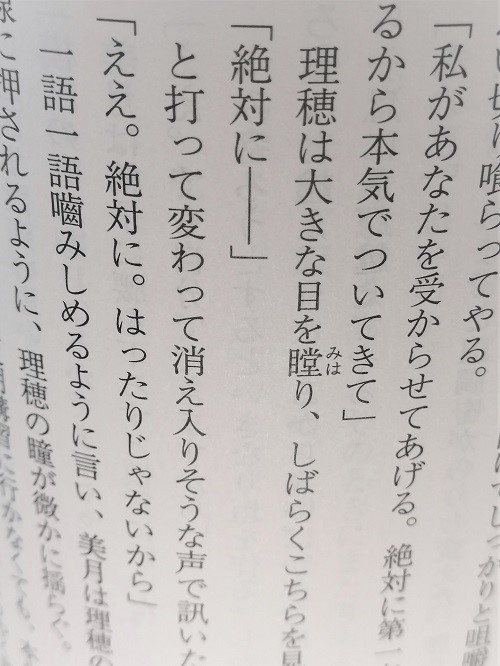 しっかりと咀嚼
喰らってやる。
「私があなたを受からせてあげる。絶対に第一
るから本気でついてきて」
理穂は大きな目を瞠り、しばらくこちらを見
みは
「絶対に――」
と打って変わって消え入りそうな声で訊いた
「ええ。絶対に。はったりじゃないから」
一語一語噛みしめるように言い、美月は理穂の
に押されるように、理穂の瞳が微かに揺らぐ。
講習に行かなくても、